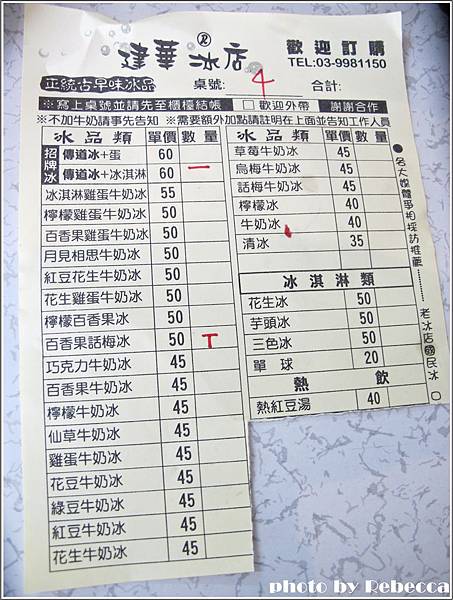 建華冰店
®
歡迎訂購
TEL:03-9981150
正統古早味冰品
桌號: 4 合計:
※寫上桌號並請先至櫃檯結帳 □歡迎外帶 謝謝合作
※不加牛奶請事先告知 ※需要額外加點請註明在上面並告知工作人員
冰品類 單價 數量
招牌冰
傳道冰+蛋 60
傳道冰+冰淇淋 60 一
冰淇淋雞蛋牛奶冰 55
檸檬雞蛋牛奶冰 50
百香果雞蛋牛奶冰 50
月見相思牛奶冰 50
紅豆花生牛奶冰 50
花生雞蛋牛奶冰 50
檸檬百香果冰 50
百香果話梅冰 50 丅
巧克力牛奶冰 45
百香果牛奶冰 45
檸檬牛奶冰 45
仙草牛奶冰 45
雞蛋牛奶冰 45
花豆牛奶冰 45
綠豆牛奶冰 45
紅豆牛奶冰 45
花生牛奶冰 45
冰品類 單價 數量
草莓牛奶冰 45
烏梅牛奶冰 45
話梅牛奶冰 45
檸檬冰 40
牛奶冰 40
清冰 35
冰淇淋類
花生冰 50
芋頭冰 50
三色冰 50
單球 20
熱飲
熱紅豆湯 40
●各大媒體爭相採訪推薦............老冰店國民冰
photo by Rebecca